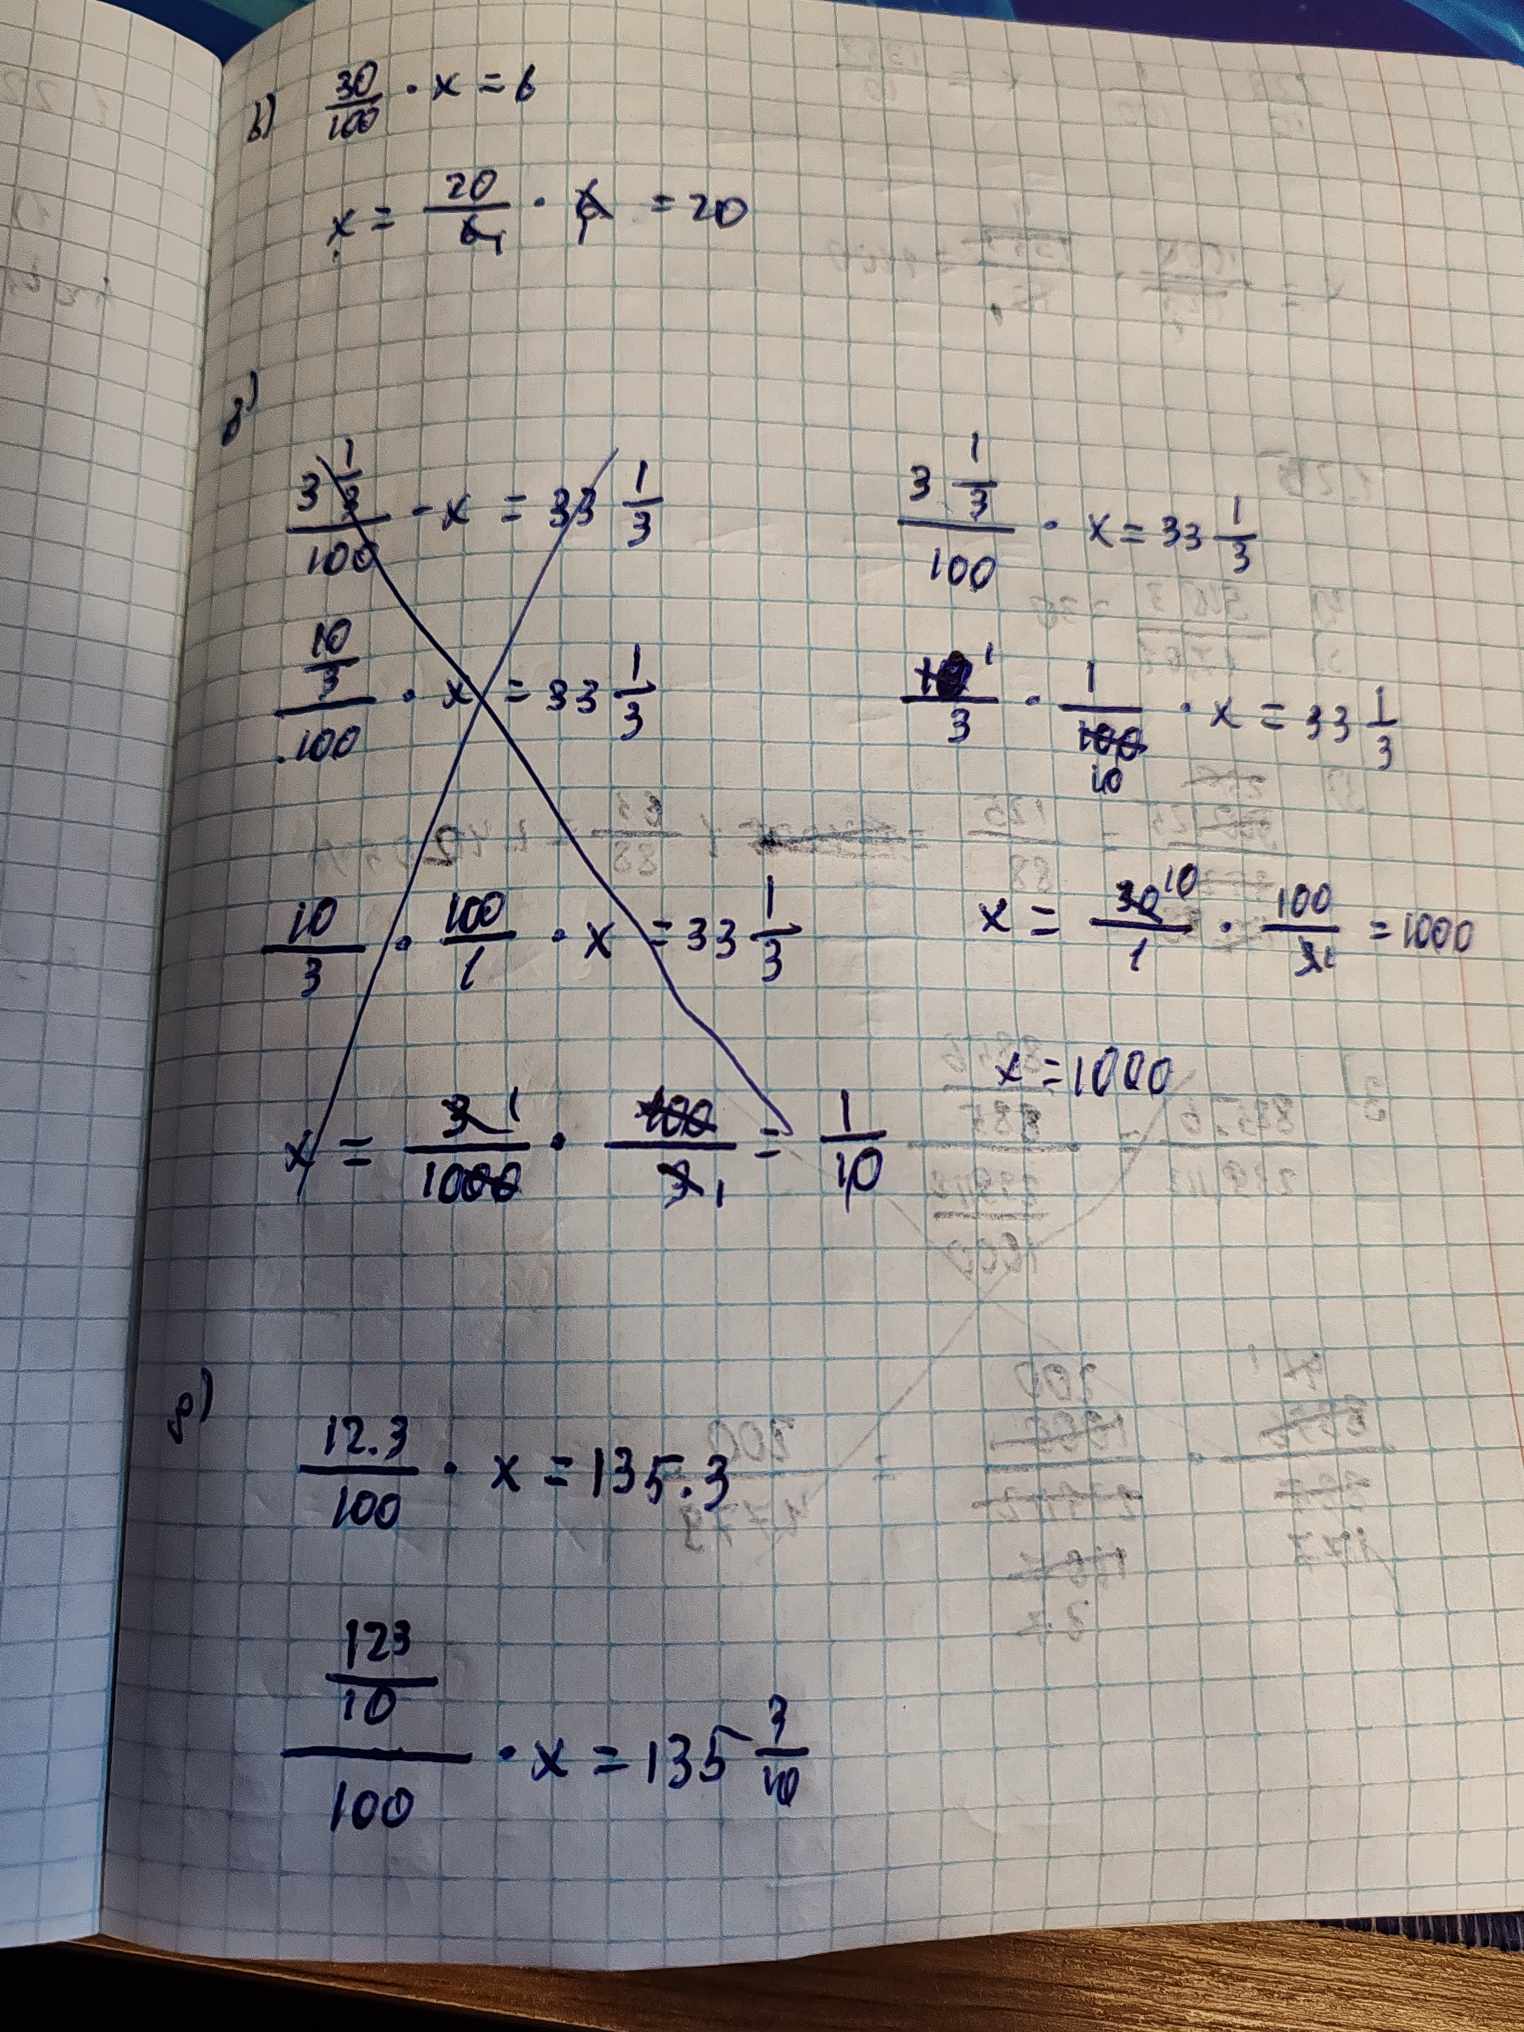 в) 30/100 · x = 6
x = 20/6 1 · 6 1 = 20
г)
3 1/3 / 100 · x = 33 1/3
10/3 / 100 · x = 33 1/3
10/3 · 100/1 · x = 33 1/3
x = 3 1/1000 · 100/3 1 = 1/10
3 1/3 / 100 · x = 33 1/3
10 1/3 · 1/100 10 · x = 33 1/3
x = 30 10/1 · 100/3 1 = 1000
x = 1000
д)
12.3/100 · x = 135.3
123/10 / 100 · x = 135 3/10